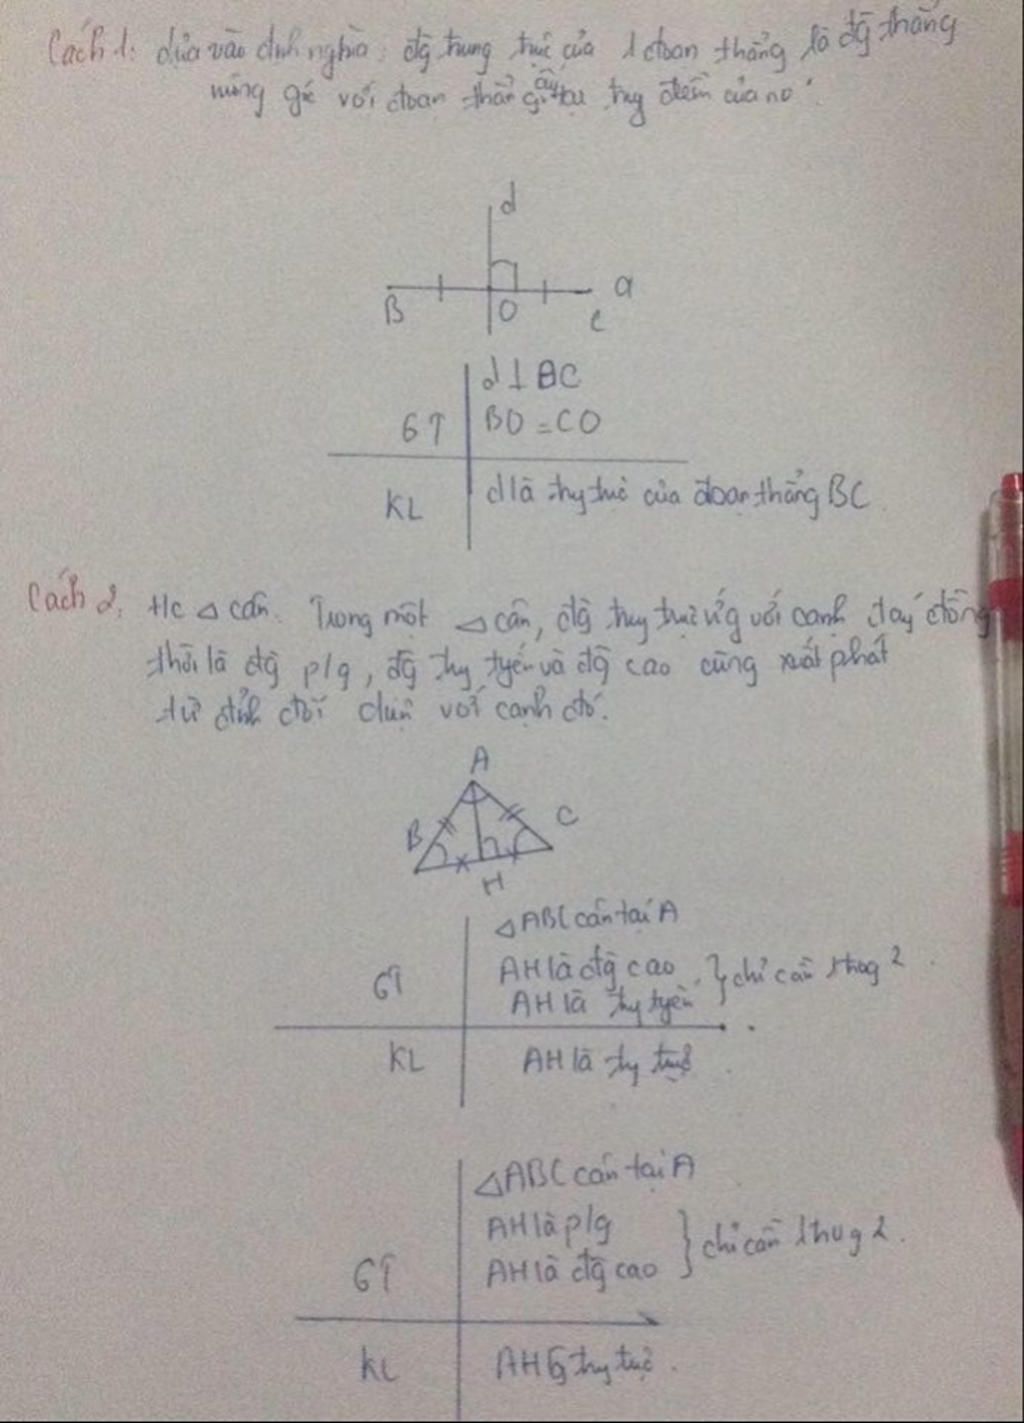 Cách 1: dựa vào định nghĩa: đg trung trực của 1 đoạn thẳng là đg thẳng
vuông góc với đoạn thẳng ấy tại trg điểm của nó.
d
a
B
O
C
d ⊥ BC
GT
BO = CO
KL
d là trg trực của đoạn thẳng BC
Cách 2: t/c △ cân. Trong một △ cân, đg trg trực ứg với cạnh đáy đồng
thời là đg p/g, đg trg tyến và đg cao cũng xuất phát
từ đỉnh đối diện với cạnh đó.
A
B
C
H
△ABC cân tại A
GT
AH là đg cao
AH là trg tyến
} chỉ cần 1 trog 2
KL
AH là trg trực
△ABC cân tại A
AH là p/g
GT
AH là đg cao
} chỉ cần 1 trog 2.
KL
AH là trg trực.